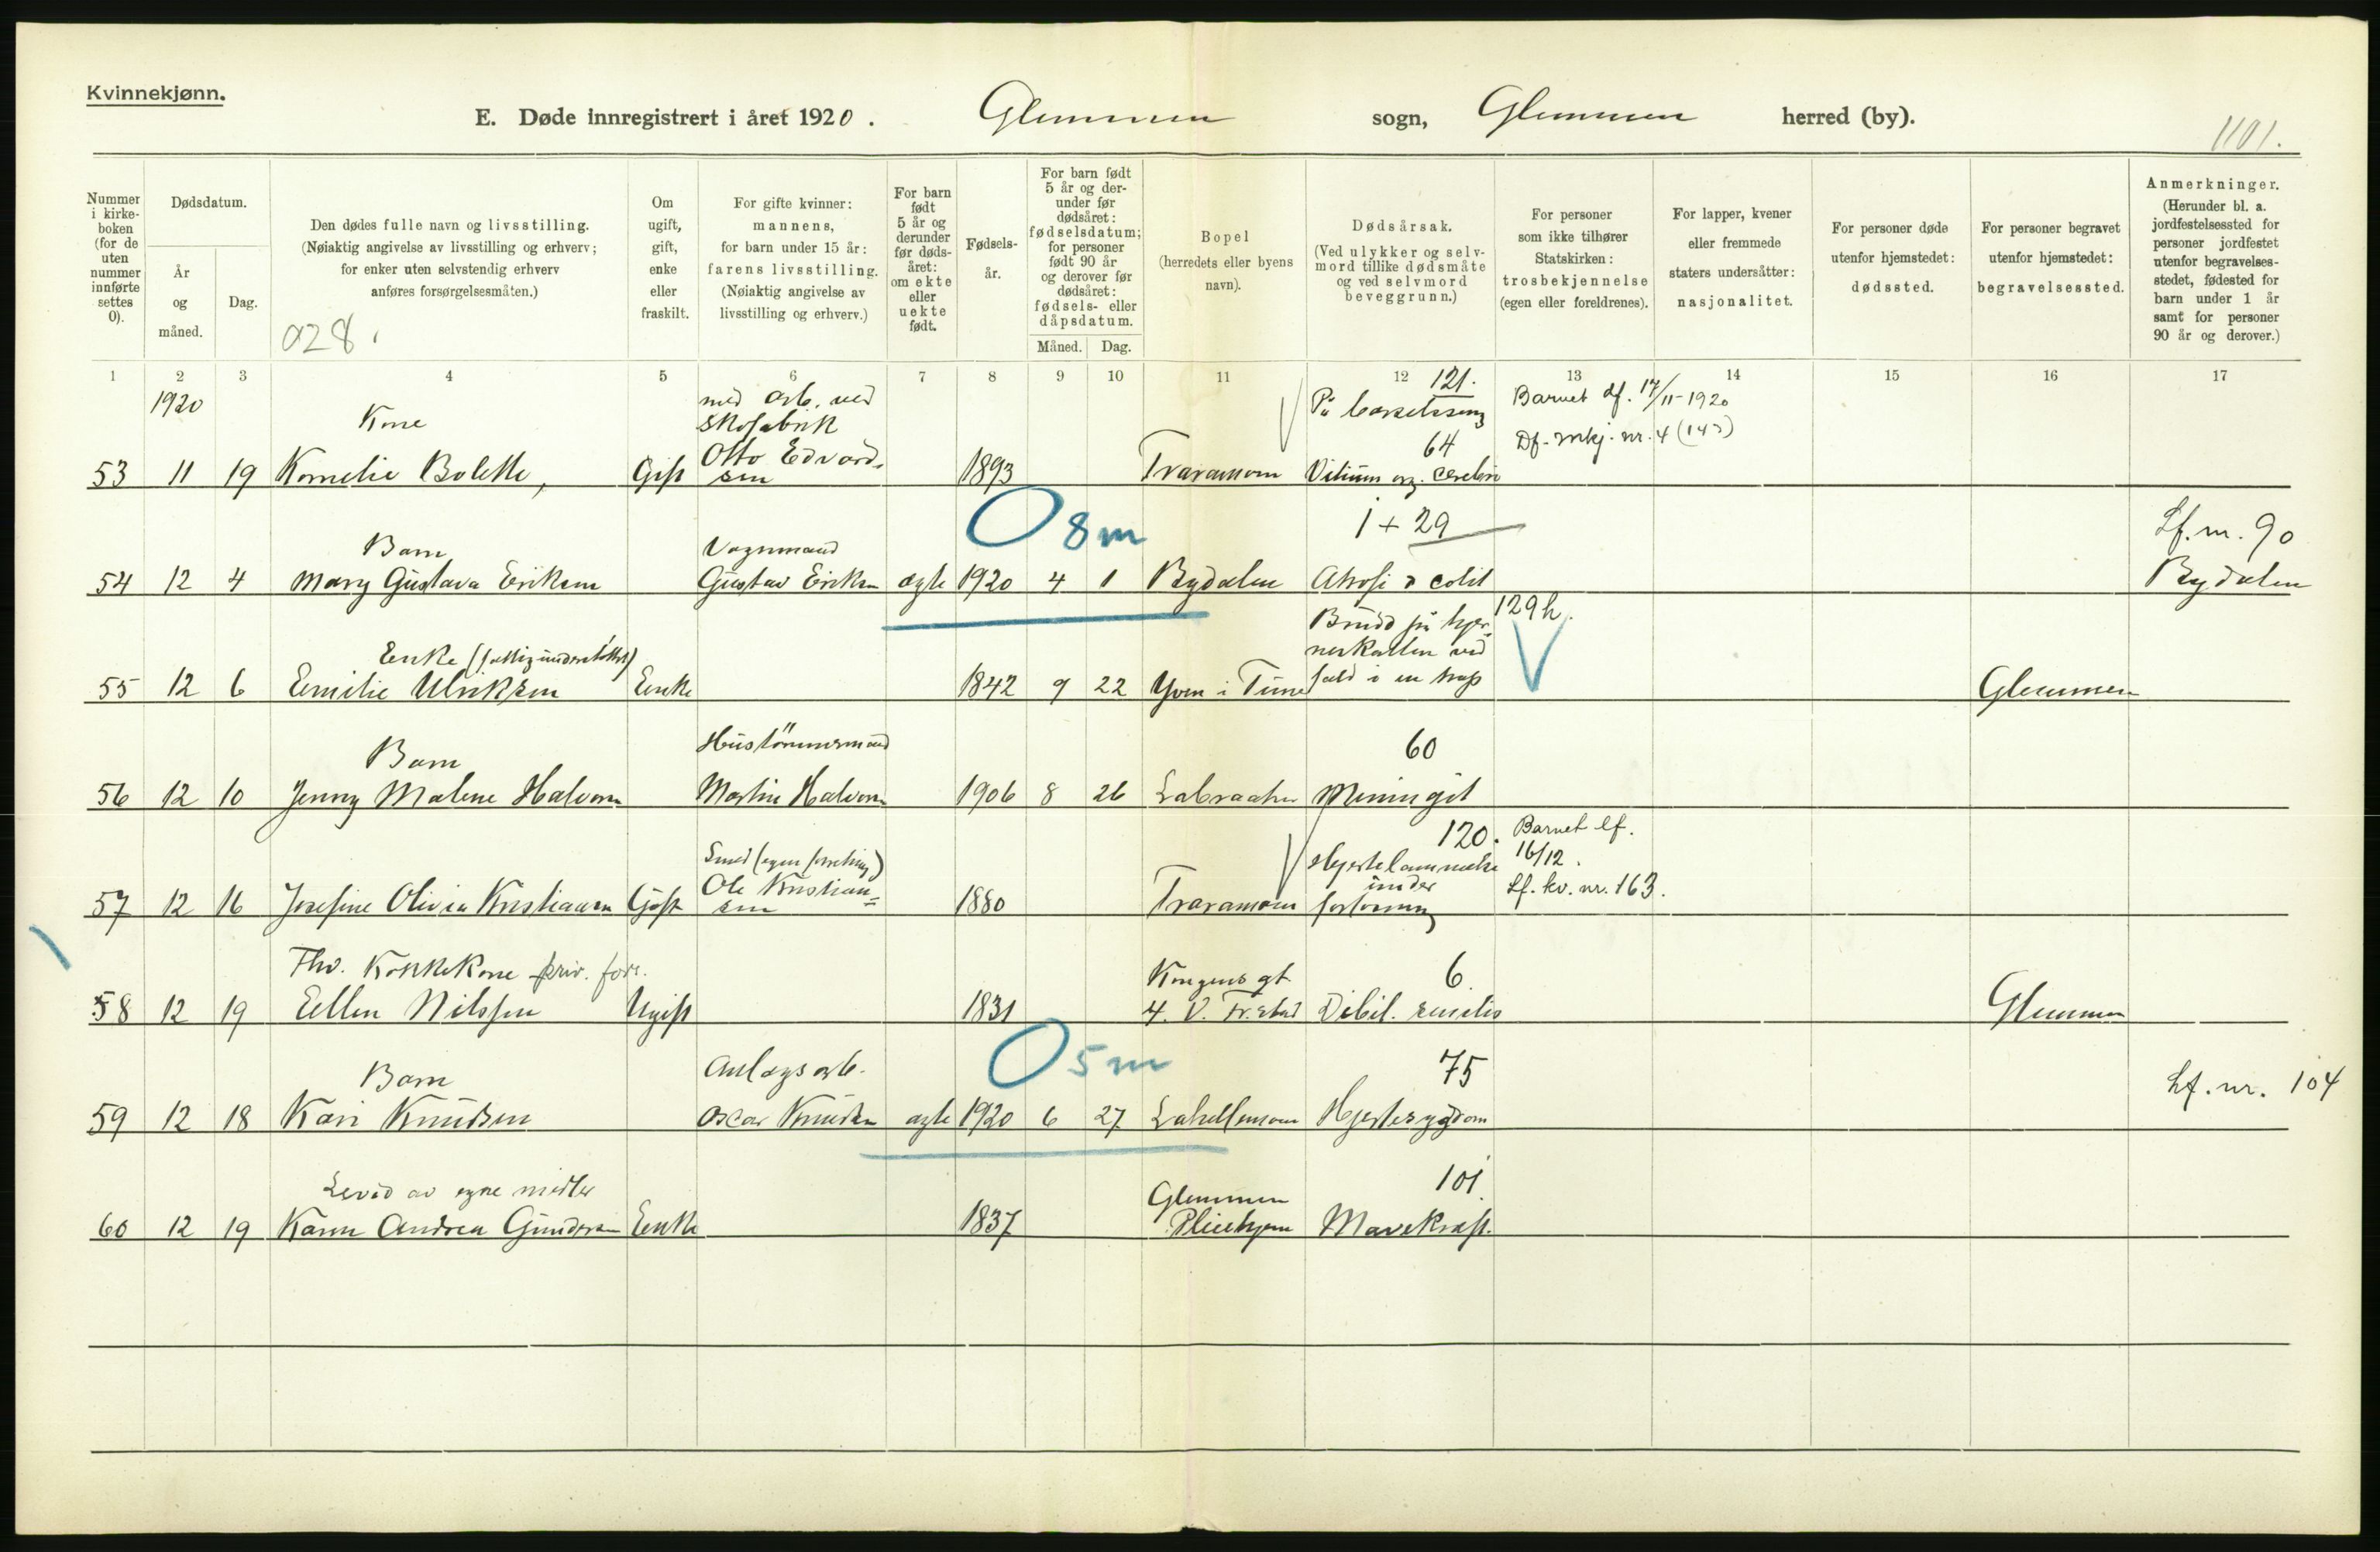 Kvinnekjønn.
E. Døde innregistrert i året 1920. Glemmen sogn, Glemmen herred (by).
1101.
Nummer i kirke- boken (for de uten nummer innførte settes 0).
Dødsdatum.
År og måned.
Dag.
Den dødes fulle navn og livsstilling.
(Nøiaktig angivelse av livsstilling og erhverv;
for enker uten selvstendig erhverv
anføres forsørgelsesmåten.)
028.
Om ugift, gift, enke eller fraskilt.
For gifte kvinner:
mannens,
for barn under 15 år:
farens livsstilling.
(Nøiaktig angivelse av
livsstilling og erhverv.)
For barn født 5 år og derunder før døds- året: om ekte eller uekte født.
Fødsels- år.
For barn født 5 år og der- under før dødsåret: fødselsdatum; for personer født 90 år og derover før dødsåret: fødsels- eller dåpsdatum.
Måned. Dag.
Bopel
(herredets eller byens
navn).
Dødsårsak.
(Ved ulykker og selv-
mord tillike dødsmåte
og ved selvmord
beveggrunn.)
For personer
som ikke tilhører
Statskirken:
trosbekjennelse
(egen eller foreldrenes).
For lapper, kvener
eller fremmede
staters undersåtter:
nasjonalitet.
For personer døde
utenfor hjemstedet:
dødssted.
For personer begravet
utenfor hjemstedet:
begravelsessted.
Anmerkninger.
(Herunder bl. a.
jordfestelsessted for
personer jordfestet
utenfor begravelses-
stedet, fødested for
barn under 1 år
samt for personer
90 år og derover.)
1 2 3 4 5 6 7 8 9 10 11 12 13 14 15 16 17
1920
Kone
med arb. ved
Skofabrik
121.
På barselseng
64
Barnet df. 17/11-1920
Df. mkj. nr. 4 (143)
53 11 19 Kornelie Bolette, Gift Otto Edvard-
sen 1893 Traramoen Vitium org. cerebri
O 8m
1 + 29
Lf. nr. 90
Barn
Vognmand
54 12 4 Mary Gustava Eriksen Gustav Eriksen ægte 1920 4 1 Bydalen Atrofi & colit Bydalen
Enke (fattigunderstøttet)
Brudd på hjer-
neskallen ved
129h.
55 12 6 Emilie Ulriksen Enke 1842 9 22 Yven i Tune fald i en trap Glemmen
Barn
60
56 12 10 Jenny Malene Halvorsen Martin Halvorsen 1906 8 26 Labraaten Meningit
Smed (egen forretning)
120.
Hjertelammelse
under
Barnet lf.
16/12.
Lf. kv. nr. 163.
57 12 16 Josefine Olivia Kristiansen Gift Ole Kristian-
sen 1880 Traramoen forløsning
Fhv. Kokkekone priv. fors.
Kongens gt.
6
58 12 19 Ellen Nilssen Ugift 1831 4. V. Fr.stad Debil. senilis Glemmen
O 5m
Barn
Anlægsarb.
75
Lf. nr. 104
59 12 18 Kari Knudsen Oscar Knudsen ægte 1920 6 27 Lahellemoen Hjertesygdom
Leved av egne midler
Glemmen
101.
60 12 19 Karen Andrea Gundersen Enke 1837 Pleiehjem Mavekræft.